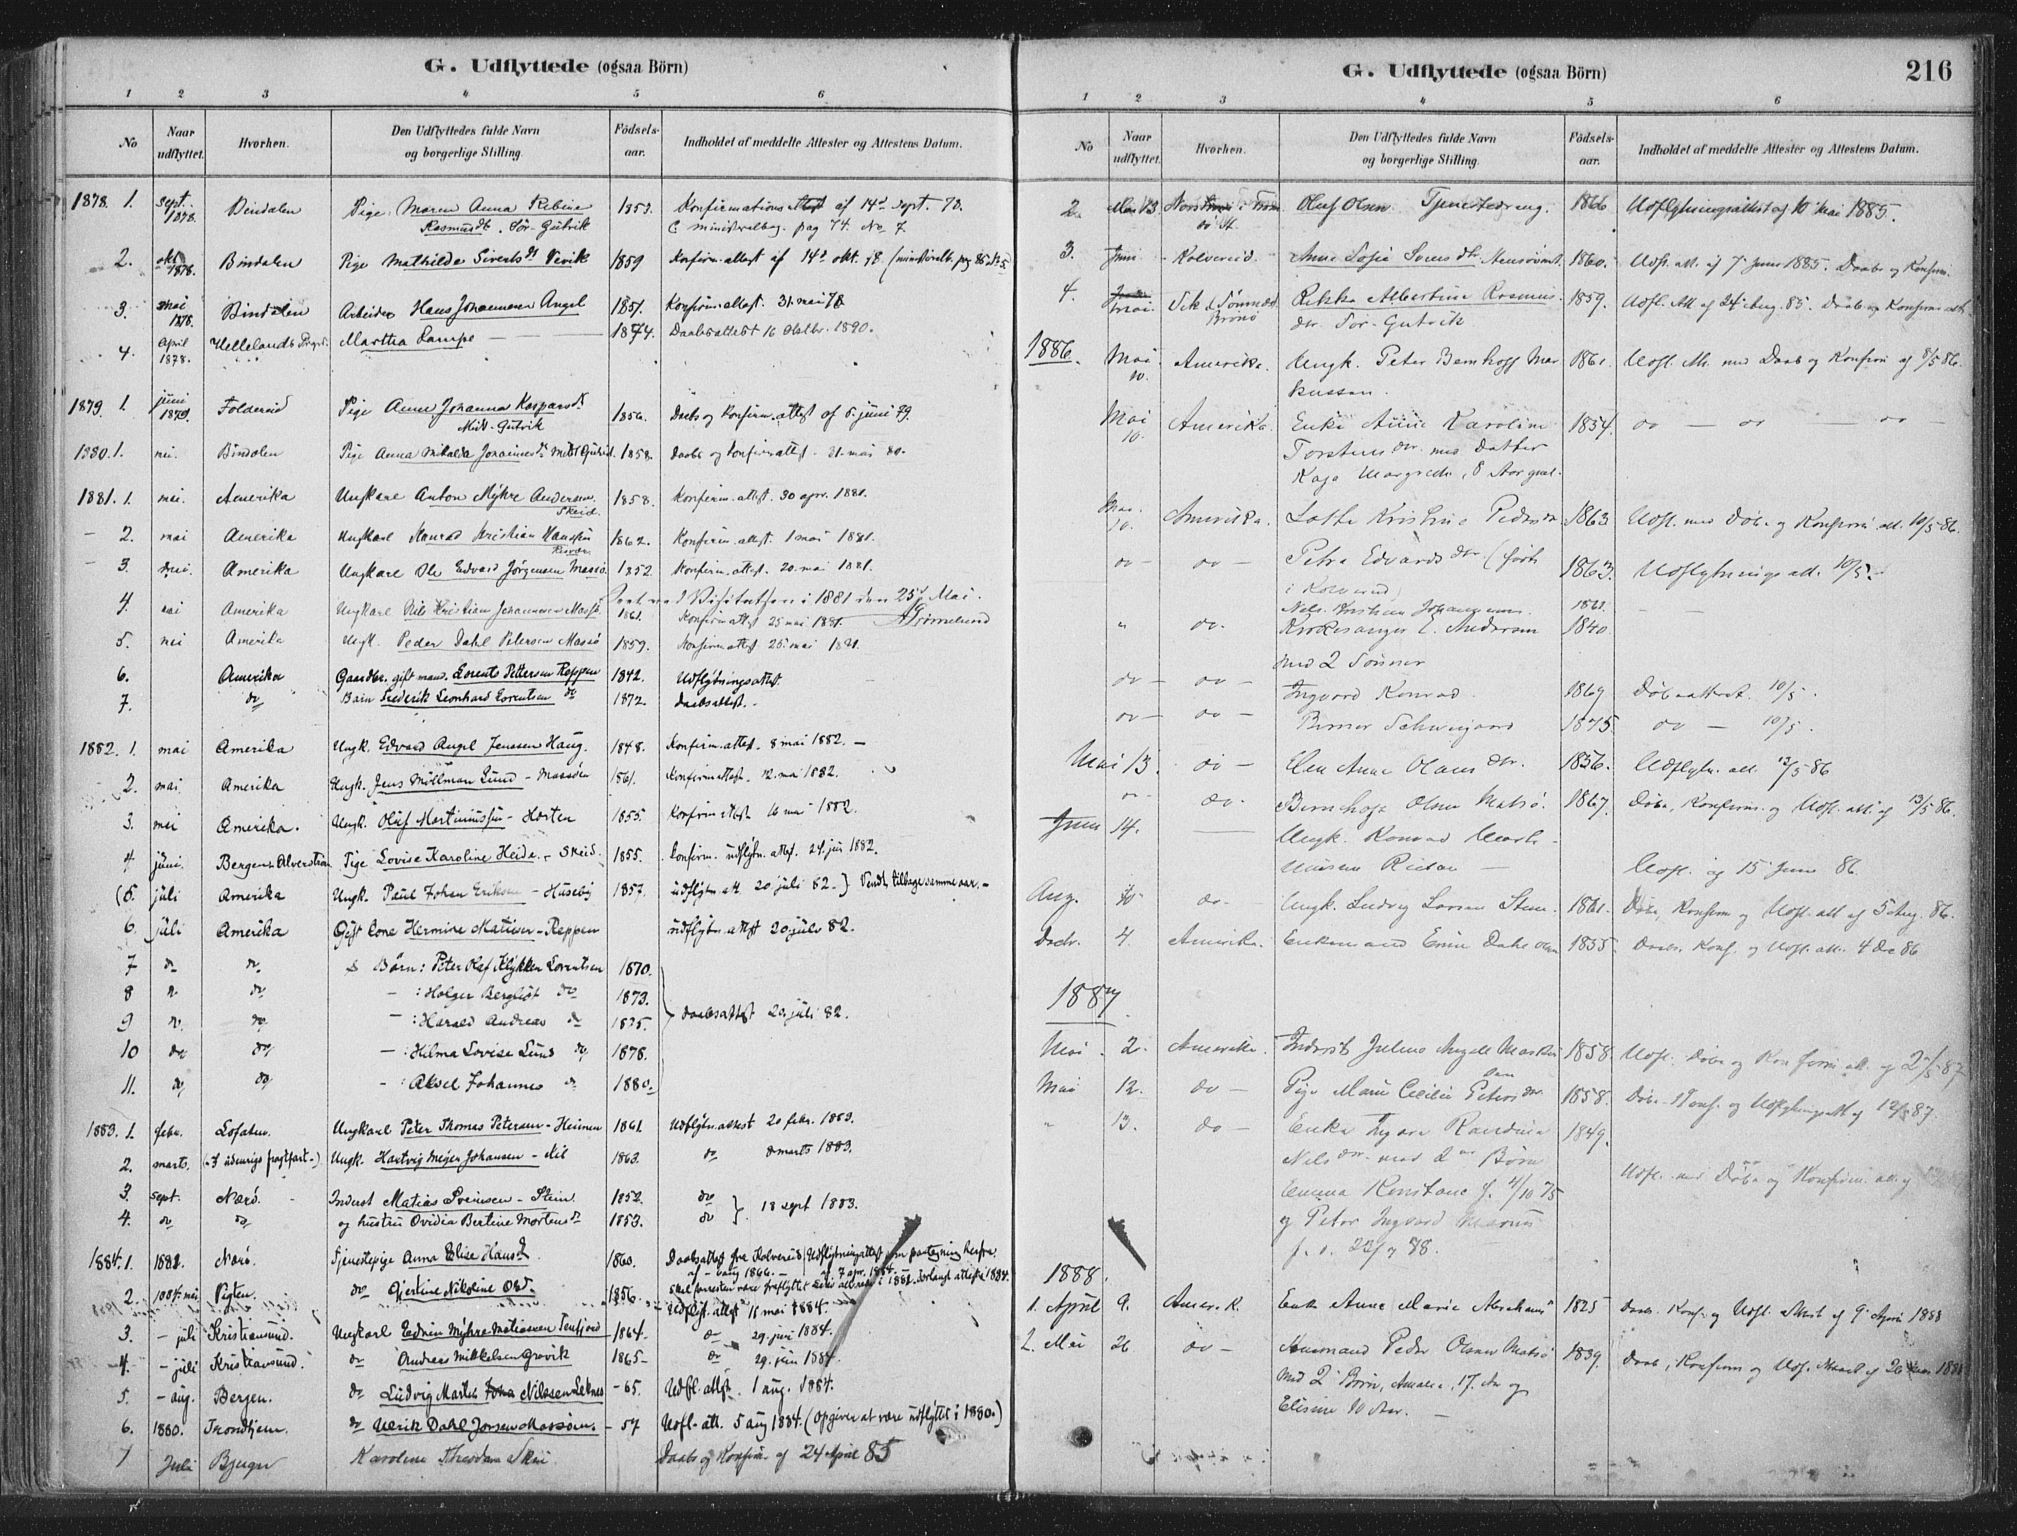 G. Udflyttede (ogsaa Börn)
1 2 3 4 5 6
No Naar udflyttet. Hvorhen. Den Udflyttedes fulde Navn og borgerlige Stilling. Födsels-aar. Indholdet af meddelte Attester og Attestens Datum.
1878. 1. Sept. 1878. Bindalen Pige Maren Anna Rebina 1853. Konfirmationsattest af 14d Sept. 78.
Rasmusdt. Sör-Gutvik pag 74. No 7
2. okt 1878. Bindalen Pige Mathilde Sivertsdt Pevik 1859 Konfirm. attest af 14d okt. 78
3. mai 1878. Bindalen Arbeider Hans Johannesen Angel 1851. Konfirm. attest. 31. mai 78
4. April 1878. Hellelands Prgd. Martha Lampe 1874. Daabsattest 16 Oktbr. 1890.
1879. 1. juni 1879. Foldereid Pige Anne Johanna Kaspersdt. 1856. Daabs og Konfirm. attest af 6 juni 79.
Mitt-Gutvik
1880. 1. mai. Bindalen Pige Anna Mikalda Johannesdt. 1858. Daabs og konfirm. attest. 21. mai 80.
1881. 1. mai. Amerika Ungkarl Anton Myhre Andersen 1858. Konfirm. attest. 30 apr. 1881.
Skeid.
2. mai Amerika Ungkarl Konrad Kristian Hansen 1862. Konfirm. attest. 1 mai 1881.
3. mai. Amerika Ungkarl Ole Edvard Jörgensen Massö 1852. Konfirm. attest. 20. mai 1881.
Visitatsen i 1881 den 25de Mai.
4. mai Amerika Ungkarl Nils Kristian Johannesen Massö 1861. Konfirm. attest 25 mai 1881.
5. mai Amerika Ungk. Peder Dahl Petersen Massö 1859. Konfirm. attest. 25. mai 1881.
6. Amerika Gaardbr. gift mand. Lorents Pettersen Reppen 1842. Udflytningsattest.
7. do Barn Frederik Leonhard Lorentsen do 1872. Daabsattest.
1882. 1. mai Amerika Ungk. Edvard Angel Jenssen Haug. 1848. Konfirm. attest. 8 mai 1882.
2. mai. Amerika Ungk. Jens Möllman Lund - Massöen 1861. Konfirm. attest. 12. mai 1882.
3. mai Amerika. Ungk. Oluf Martinussen - Horten 1855. Konfirm. attest 16 mai 1882.
4 juni. Bergen Pige Lovise Karoline Heide - Skeid 1855. Konfirm. udflytn. attest. 24. juni 1882.
(5. juli Amerika Ungk. Paul Johan Eriksen - Huseby 1857. udflytn. att 20 juli 82.) Vendt tilbage samme aar.
6. juli Amerika Gift Cone Hermine Matisen - Reppen udflytn. attest 20 juli 82.
7 do do & Börn: Peter Olaf Klykken Lorentsen 1870.
8 do do - : Holger Berglist do 1873.
9 do do - : Harald Andreas do 1875. Daabsattest 20. juli 82.
10 do do - : Hilma Lovise Lund do 1878.
11. do do - : Aksel Johannes do 1880.
1883. 1. febr. Lofoten. Ungkarl Peter Thomas Petersen - Heimen 1861. Udflytn. attest 20 febr. 1883.
2. marts. Ungk. Hartvig Meyer Johansen 1863. do marts 1883.
3. sept. Nærö. Inderst Matias Sveinsen - Stein 1852. do
4. do do og hustru Ovidia Bertine Mortensdt 1853. do 18 sept 1883.
1884. 1. 1882. Nærö. Tjenestepige Anna Elise Hansdt. 1860. Daabsattest fra Kolvereid
2. 1884. mai Vigten. do Gjertine Nikoline Olsdt. 1856. Udflyt. attest 11 mai 1884.
3. - juli Kristiansund. Ungkarl Edvin Myhre Matiassen Tenfjord 1864. do 29. juni 1884.
4. - juli Kristiansund. do Andreas Mikkelsen Gravik 1865 do 29. juni 1884
5. - aug. Bergen. do Ludvig Martin Nilssen Leknes - 65. Udfl. attest. 1 aug. 1884.
6. 1880. Trondhjem. do Ulrik Dahl Jonsen Massöen. - 57 Udfl. att. 5 aug 1884. (Opgiver at være udflyttet i 1880.)
7 Juli Karoline Theodora Skei Daabs og Konfirm af 24 April 85
G. Udflyttede (ogsaa Börn) 216
1 2 3 4 5 6
No Naar udflyttet. Hvorhen. Den Udflyttedes fulde Navn og borgerlige Stilling. Födsels-aar. Indholdet af meddelte Attester og Attestens Datum.
2. Oluf Olsen Tjenestedreng. 1866 Udflytningsattest af 10 Mai 1885.
3. Juni Kolvereid. Anne Sofie 1860. Udfl. att. af 7 Juni 1885. Daabs og Konfirm.
4. Mai. Rikka Albertine Rasmus- 1859. Udfl. Att. af 24 Aug. 85. Daabs og Konfirms att.
Brönö dtr Sör-Gutvik
1886. Mai 10. Amerika. Ungk. Peter Bernhoff Mar- 1861. Udfl. Att. med Daabs og Konfirm af 8/5 86.
kussen.
Mai 10. Amerika. Enke Anne Karoline 1854. do — do — do —
Torstensdtr. med Datter
Kaja Margrethe, 8 Aar gml.
Mai. 10. Amerika. Lotte Kristine Pedersdr 1863 Udfl. med Döbe og Konfirm att. 10/5 86.
do do Petra Edvardsdtr (født 1863. Udflytnings att. 10/5
i Kolvereid)
Nils Kristian Johannesen. 1861.
" do. Kirkesanger E. Andersen 1840
med 2 Sönner
do do Ingvard Konrad. 1869 Döbeattest. 10/5.
do do Schweigaard 1875 do — 10/5.
Mai 13. do Elen Anne Olausdtr. 1856. Udflytn. att. 13/5 86
do. Olsen Matsö. 1867. Döbe, Konfirms. og Udfl. att. af 13/5 86.
Juni 14. Ungk. Konrad
Udfl. af 15 Juni 86.
Aug. do Ungk. Ludvig Larsen Stein. 1861. Döbe, Konfirm og Udfl. att af 5 Aug. 86.
Decbr. 4. Amerika. Enkemand Dahl 1855. Daabs. Konf. og Udfl. att. 4 Dec 86
1887
Mai 2. Amerika. Inderst Julius Angell 1858. Udfl. Döbe og Konfirm att. af 2/5 87
Mai 12. do Pige Marie Cecilie Petersdtr 1858. Döbe- Konf. og Udflytningsatt af 12/5 87.
" 13. do Enke Randine 1849.
Nilsdtr. med 2 Börn Udfl. med Döbe og Konfirm. att. af
Emma Konstanc f. 4/10 75
og Peter Ingvard
f. d. 23/7 78.
1888.
1. April 9. Amerik. Enke Anne Marie Abrahams 1825 Daabs. Konf. og Udfl. Attest af 9 April 1888
2. Mai 26 do Peder Olsen Matsö 1839. Daab, Konfirm og Udfl. Attest af 26 1888
med 2 Börn, Amalie, 17. Aar og
Elisine 10 Aar.